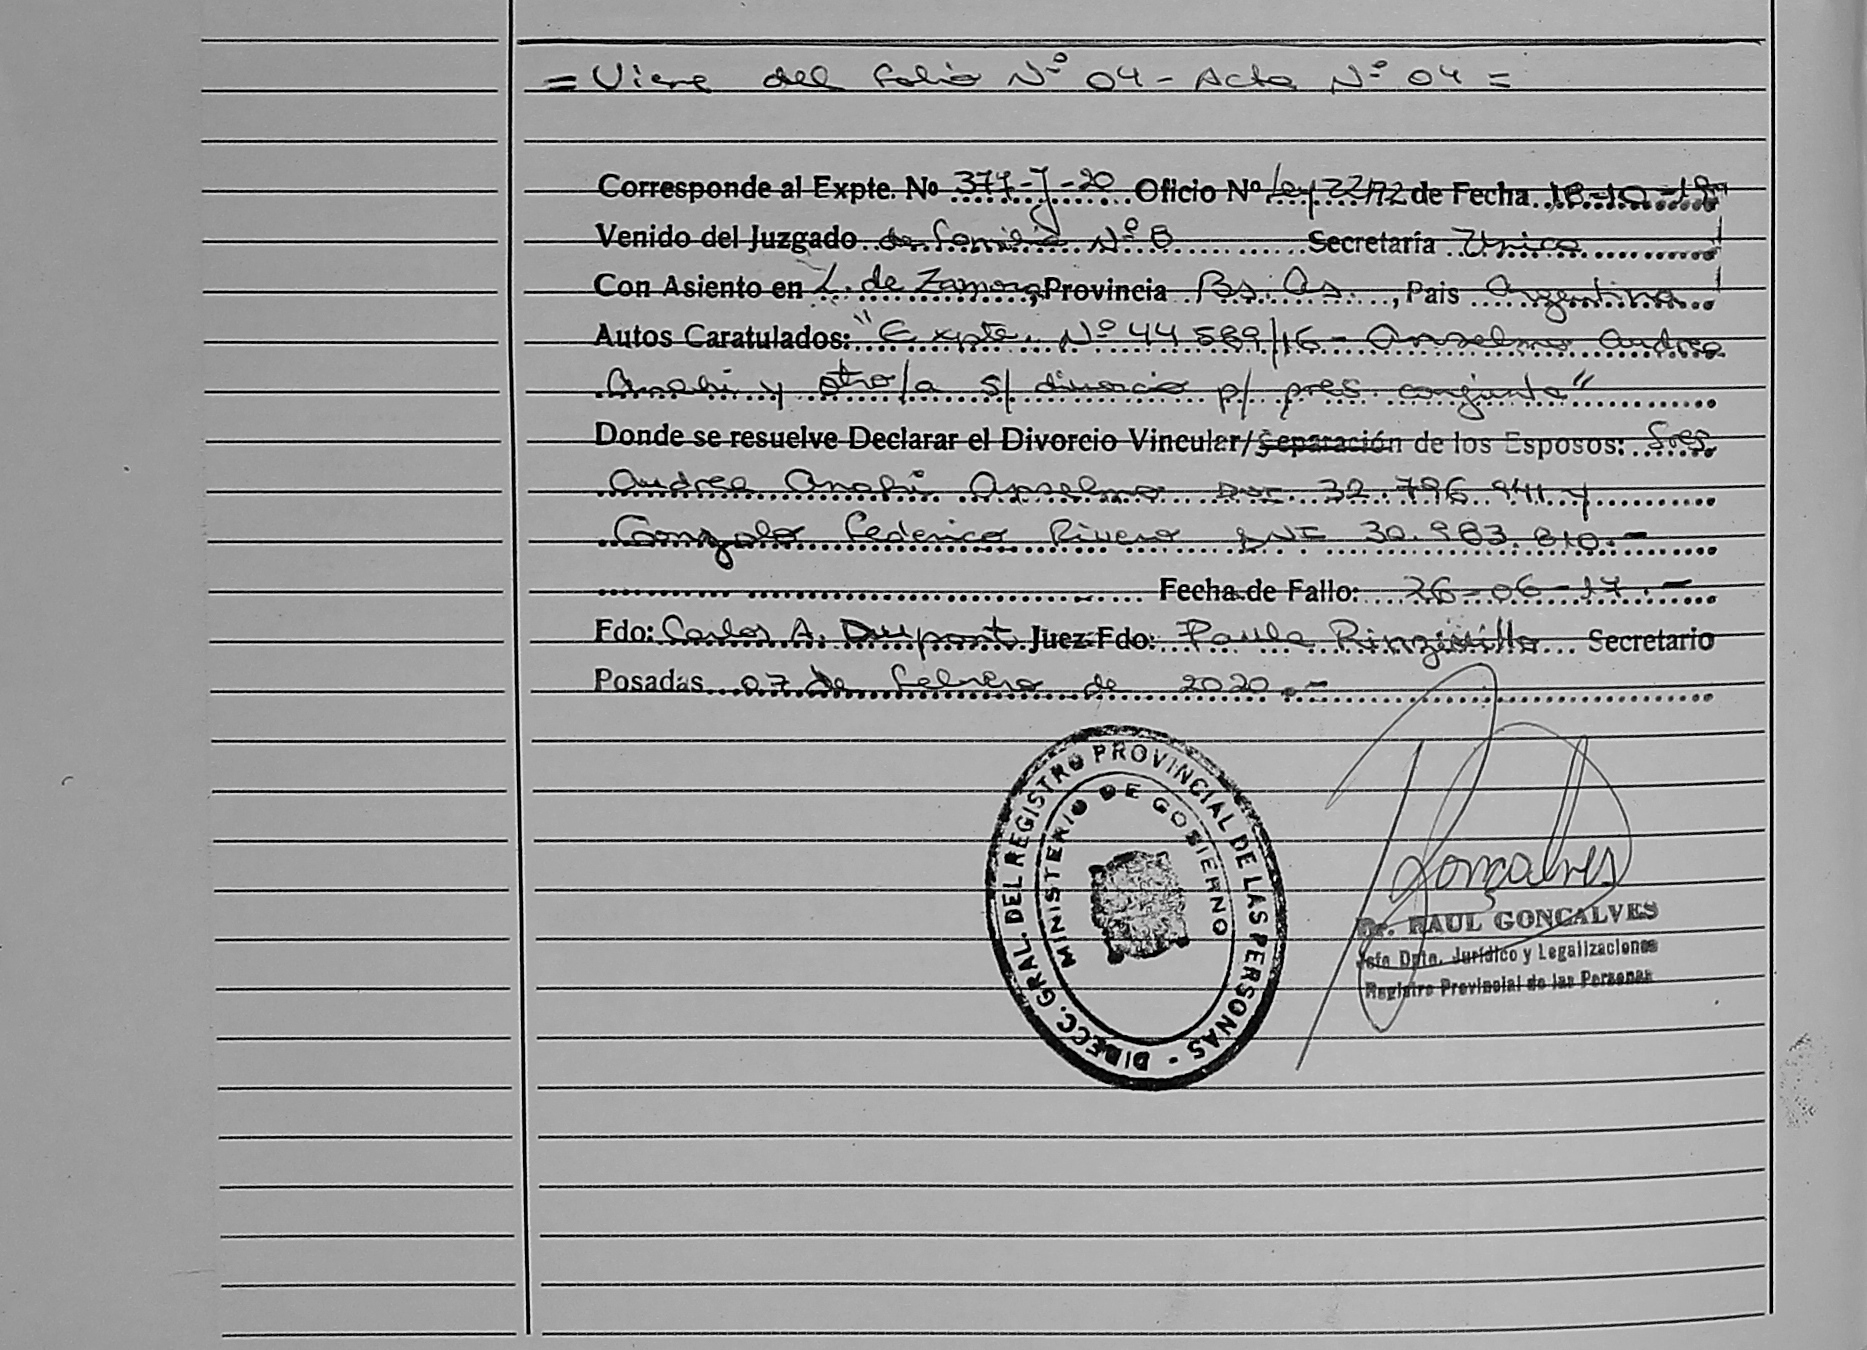 = Viene del folio Nº 04 - Acta Nº 04 =
Corresponde al Expte. No 377-J-20 Oficio Nº Ley 22172 de Fecha 18-10-19
Venido del Juzgado de familia Nº 8 Secretaría Unica
Con Asiento en L. de Zamora, Provincia Bs. As. , Pais Argentina
Autos Caratulados: "Expte. Nº 44589/16 - Anselmo Andrea
Anahi y otro/a s/ divorcio p/ pres. conjunta"
Donde se resuelve Declarar el Divorcio Vincular/Separación de los Esposos: Sres
Andrea Anahi Anselmo DNI 32.796.941 y
Gonzalo Federico Rivero DNI 30.983.810.-
Fecha de Fallo: 26-06-17.-
Fdo: Carlos A. Dupont Juez Fdo: Paula Secretario
Posadas 07 de febrero de 2020.-
DIRECC. GRAL. DEL REGISTRO PROVINCIAL DE LAS PERSONAS -
MINISTERIO DE GOBIERNO
Gonçalves
Dr. RAUL GONÇALVES
Jefe Dpto. Jurídico y Legalizaciones
Registro Provincial de las Personas